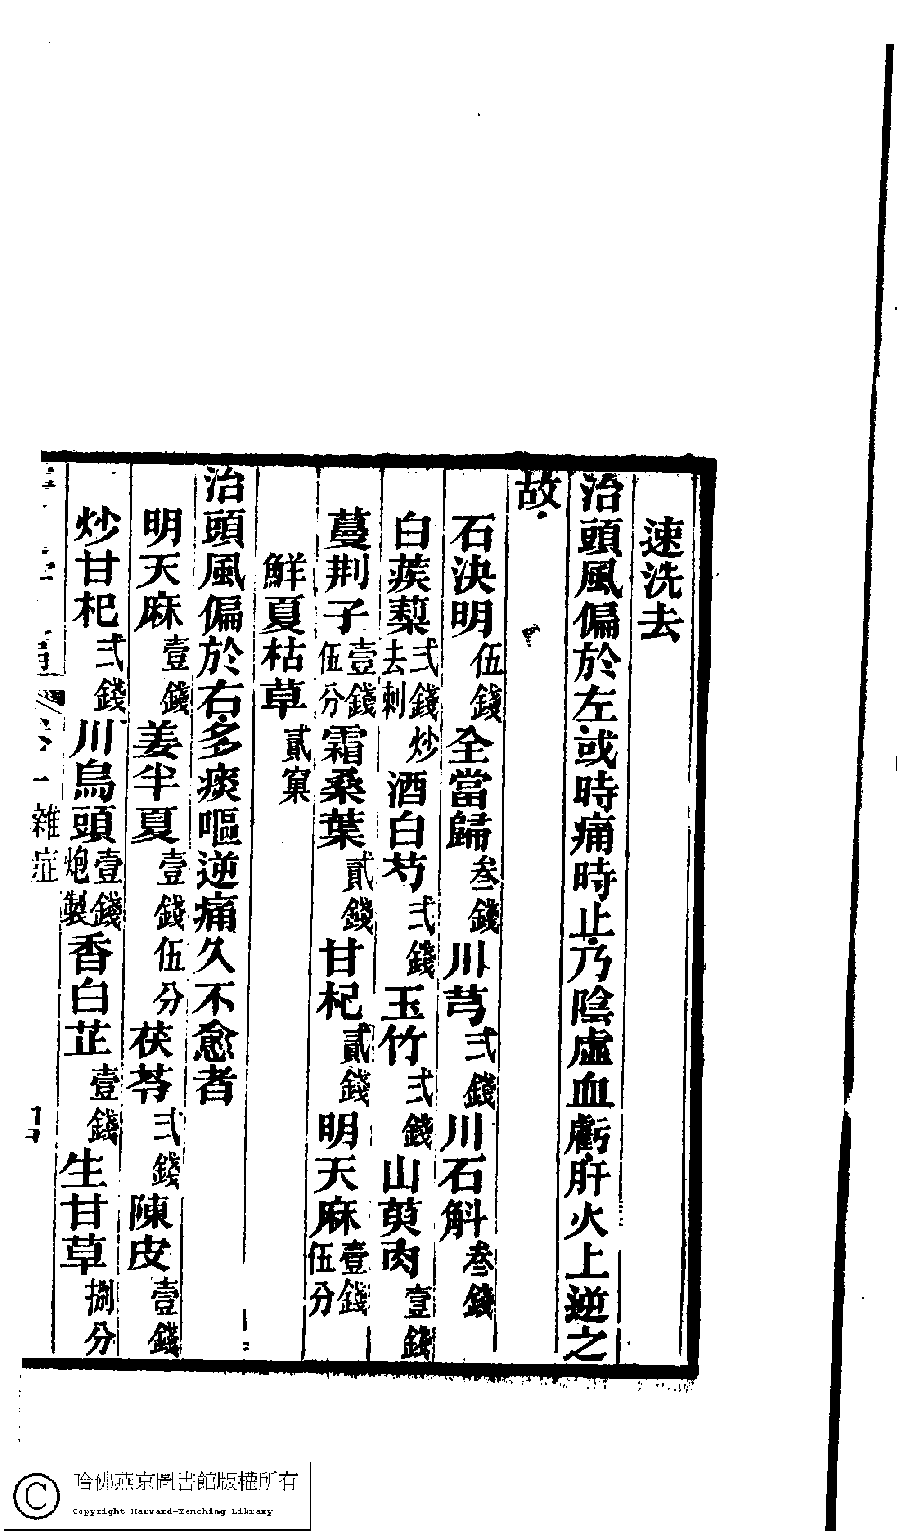 速洗去
治頭風偏於左或時痛時止乃陰虛血虧肝火上逆之
故
石決明伍錢全當歸叁錢川芎弍錢川石斛叁錢
白蒺蔾弍錢炒去刺酒白芍弍錢玉竹弍錢山萸肉壹錢
蔓荆子壹錢伍分霜桑葉貳錢甘杞貳錢明天麻壹錢伍分
鮮夏枯草貳窠
治頭風偏於右多痰嘔逆痛久不愈者
明天麻壹錢姜半夏壹錢伍分茯苓弍錢陳皮壹錢
炒甘杞弍錢川烏頭壹錢炮製香白芷壹錢生甘草捌分
卷一雜症
哈佛燕京圖書館版權所有
Copyright Harvard-Yenching Library